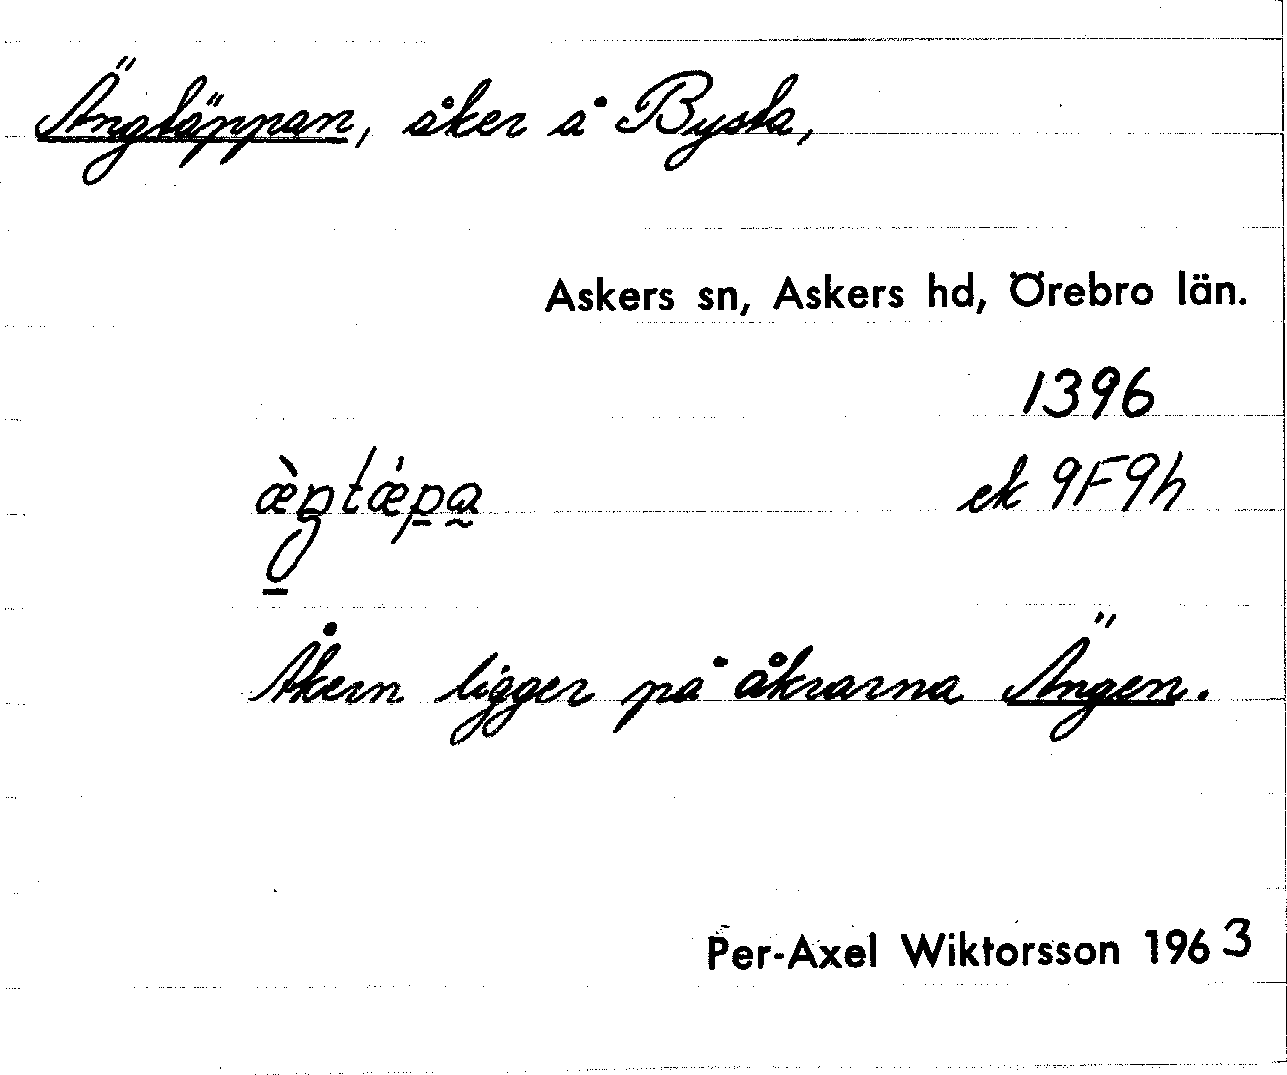 Ängtäppan, åker å Bysta,
Askers sn, Askers hd, Örebro län.
1396
ek 9F9h
Åkern ligger på åkrarna Ängen.
Per-Axel Wiktorsson 1963